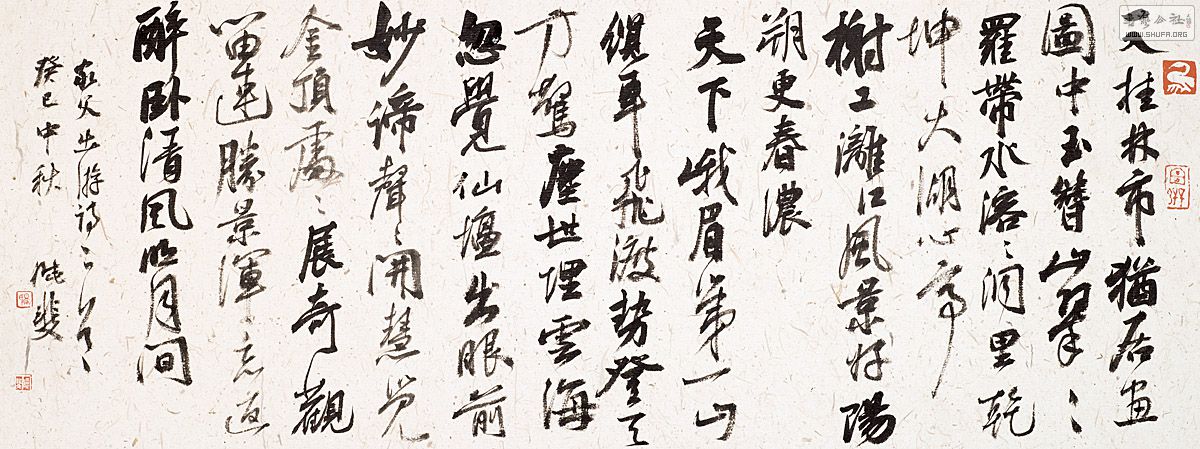 一入桂林市猶居畫
圖中玉簪山翠〻
羅帶水溶〻洞里乾
坤大湖心亭
榭工灕江風景好陽
朔更春濃
天下峨眉第一山
車飛渡勢登天
方驚塵世埋雲海
忽覺仙壇出眼前
妙諦聲〻開慧覺
金頂處〻展奇觀
留連勝景渾忘返
醉臥清風明月間
家父出游詩二首
癸巳中秋
WWW.SHUFA.ORG